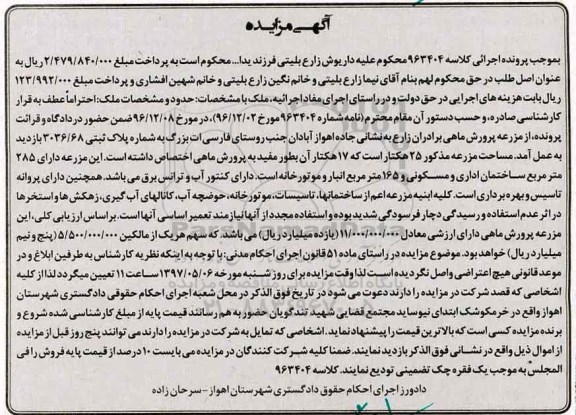 آگهی مزایده
بموجب پرونده اجرائی کلاسه ۹۶۳۴۰۴ محکوم علیه داریوش زارع بلیتی فرزند یدا... محکوم است به پرداخت مبلغ ۲/۴۷۹/۸۴۰/۰۰۰ ریال به
عنوان اصل طلب در حق محکوم لهم بنام آقای نیما زارع بلیتی و خانم نگین زارع بلیتی و خانم شهین افشاری و پرداخت مبلغ ۱۲۳/۹۹۲/۰۰۰
ریال بابت هزینه های اجرایی در حق دولت و در راستای اجرای مفاد اجرائیه، ملک با مشخصات: حدود و مشخصات ملک: احتراماً عطف به قرار
کارشناسی صادره، و حسب دستور آن مقام محترم (نامه شماره ۹۶۳۴۰۴ مورخ ۹۶/۱۲/۰۲)، در مورخ ۹۶/۱۲/۰۸ ضمن حضور در دادگاه و قرائت
پرونده، از مزرعه پرورش ماهی برادران زارع به نشانی جاده اهواز آبادان جنب روستای فارسی ات بزرگ به شماره پلاک ثبتی ۳۰۳۶/۶۸ بازدید
به عمل آمد. مساحت مزرعه مذکور ۲۵ هکتار است که ۱۷ هکتار آن بطور مفید به پرورش ماهی اختصاص داشته است. این مزرعه دارای ۲۸۵
متر مربع ساختمان اداری و مسکونی و ۱۶۵ متر مربع انبار و موتورخانه است. دارای کنتور آب و ترانس برق می باشد. همچنین دارای پروانه
تاسیس و بهره برداری است. کلیه ابنیه مزرعه اعم از ساختمانها، تاسیسات، موتورخانه، حوضچه آب، کانالهای آب گیری، زهکش ها و استخرها
در اثر عدم استفاده و رسیدگی دچار فرسودگی شدید بوده و استفاده مجدد از آنها نیازمند تعمیر اساسی آنها است. براساس ارزیابی کلی، این
مزرعه پرورش ماهی دارای ارزشی معادل ۱۱/۰۰۰/۰۰۰/۰۰۰ (یازده میلیارد ریال) می باشد. که سهم هریک از مالکین ۵/۵۰۰/۰۰۰/۰۰۰ (پنج و نیم
میلیارد ریال) خواهد بود. موضوع مزایده در راستای ماده ۵۱ قانون اجرای احکام مدنی: با توجه به اینکه نظریه کارشناسی به طرفین ابلاغ و در
موعد قانونی هیچ اعتراضی واصل نگردیده است لذا وقت مزایده برای روز شنبه مورخه ۱۳۹۷/۰۵/۰۶ ساعت ۱۱ تعیین میگردد لذا از کلیه
اشخاصی که قصد شرکت در مزایده را دارند دعوت می شود در تاریخ فوق الذکر در محل شعبه اجرای احکام حقوقی دادگستری شهرستان
اهواز واقع در خرمکوشک ابتدای نیوساید مجتمع قضایی شهید تندگویان حضور به هم رسانند قیمت پایه از مبلغ کارشناسی شده شروع و
برنده مزایده کسی است که بالاترین قیمت را پیشنهاد نماید. اشخاصی که تمایل به شرکت در مزایده را دارند می توانند پنج روز قبل از مزایده
از اموال ذیل واقع در نشانی فوق الذکر بازدید نمایند. ضمنا کلیه شرکت کنندگان در مزایده می بایست ۱۰ درصد از قیمت پایه فروش را فی
المجلس به موجب یک فقره چک تضمینی تودیع نمایند. کلاسه ۹۶۳۴۰۴
دادورز اجرای احکام حقوق دادگستری شهرستان اهواز - سرحان زاده